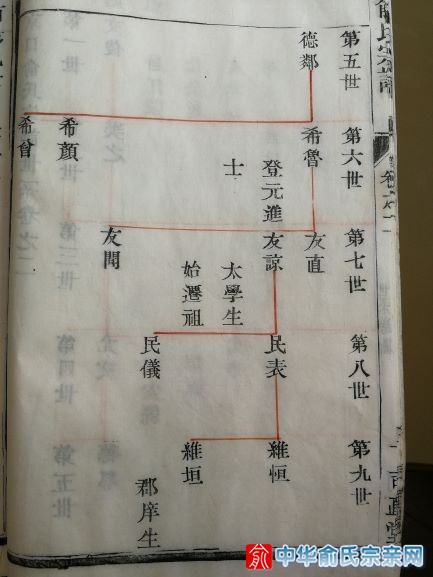 第五世
德鄰
第六世
希魯
登元進
士
希顏
希曾
第七世
友直
友諒
太學生
始遷祖
友聞
第八世
民表
民儀
第九世
維恒
維垣
郡庠生
中华俞氏宗亲网